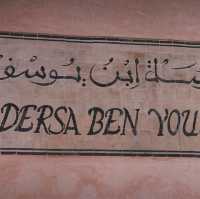 سَة اِبْن يُوسُف
DERSA BEN YOU